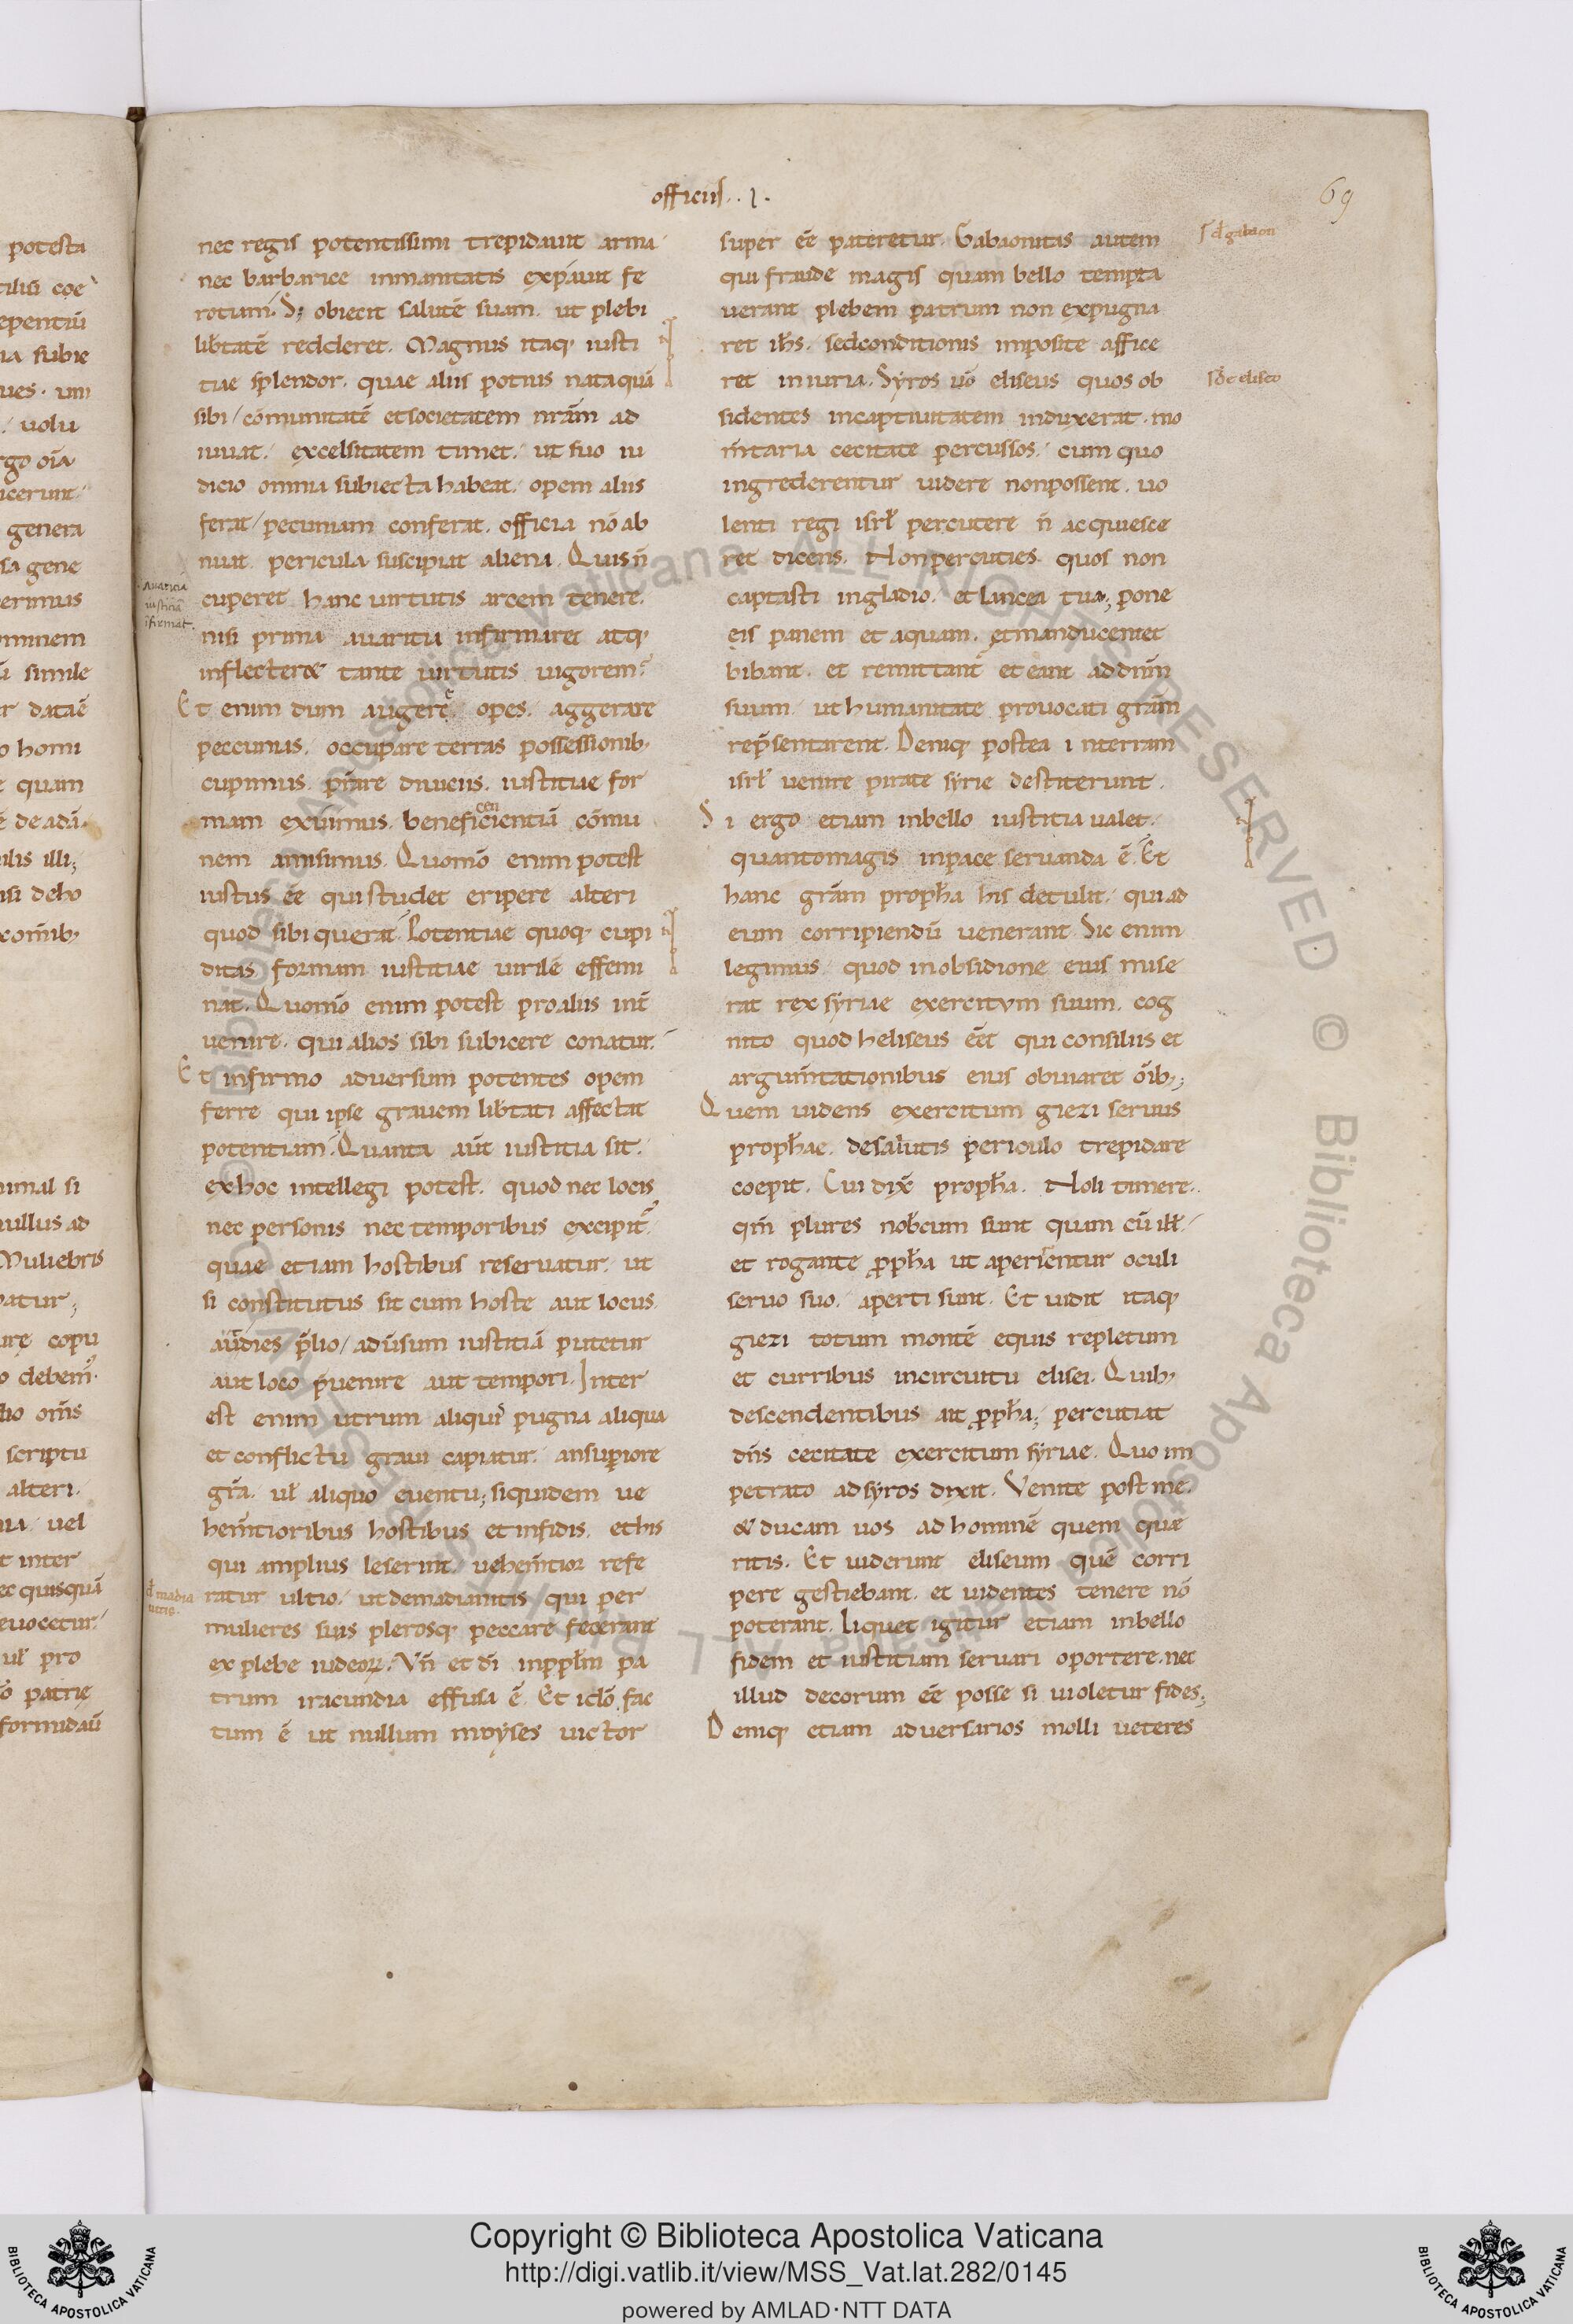 officiis . I .
69
nec regis potentissimi trepidauit arma
nec barbarice inmanitatis expauit fe
rotum. S; obiecit salutē suam. ut plebi
lib̄tatē redderet. Magnus itaq; iusti
tiae splendor. quae aliis potius nata quā
sibi / cōmunitatē et societatem nr̄am ad
iuuat. excelsitatem timet. ut suo iu
dicio omnia subiecta habeat. opem aliis
ferat / pecuniam conferat. officia nō ab
nuat. pericula suscipiat aliena. Quis n̄
cuperet hanc uirtutis arcem tenere.
nisi prima auaritia infirmaret atq;
inflecter& tante uirtutis uigorem?
Et enim dum augere opes. aggerare
peccunias. occupare terras possessionib;
cupimus. p̄stare diuitiis. iustitiae for
mam exuimus. beneficientiā cōmu
nem amisimus. Quomō enim potest
iustus ēe qui studet eripere alteri
quod sibi querat. Potentiae quoq; cupi
ditas formam iustitiae uirilē effemi
nat. Quomō enim potest pro aliis int̄
uenire. qui alios sibi subicere conatur.
Et infirmo aduersum potentes opem
ferre qui ipse grauem lib̄tati affectat
potentiam. Quanta aūt iustitia sit.
ex hoc intellegi potest. quod nec locis
nec personis nec temporibus excipit̄.
quae etiam hostibus reseruatur. ut
si constitutus sit cum hoste aut locus
aut dies p̄lio / aduūsum iustitiā putetur
aut loco p̄uenire aut tempori. Inter
est enim utrum aliquis pugna aliqua
et conflictu graui capiatur. an supiore
gr̄a. ul̄ aliquo euentu; siquidem ue
hem̄tioribus hostibus et infidis. et his
qui amplius leserint. uehem̄tior refe
ratur ultio. ut de madianitis qui per
mulieres suis plerosq; peccare fecerant
ex plebe iudeoꝝ. Vn̄ et dī inpp̄lm pa
trum iracundia effusa ē. Et iclō fac
tum ē ut nullum moyses uictor
auaricia
iusticiā
ifirmat
d̄ madia
nitis.
super ēe pateretur. Gabaonitas autem
qui fraude magis quam bello tempta
uerant plebem patrum non expugna
ret ih̄s. sed conditionis imposite affice
ret iniuria. Syros uō eliseus quos ob
sidentes in captiuitatem induxerat. mo
m̄taria cecitate percussos. cum quo
ingrederentur uidere non possent. uo
lenti regi isrl̄ percutere n̄ acquiesce
ret dicens. Non percuties quos non
captasti in gladio. et lancea tua; pone
eis panem et aquam. et manducent et
bibant. et remittant̄ et eant ad dn̄m
suum. ut humanitate prouocati gr̄am
rep̄sentarent. Deniq; postea in terram
isrl̄ uenire pirate syrie destiterunt.
Si ergo etiam in bello iustitia ualet.
quanto magis in pace seruanda ē. Et
hanc gr̄am proph̄a his detulit. qui ad
eum corripiendū uenerant. Sic enim
legimus. quod in obsidione eius mise
rat rex syriae exercitum suum. cog
nito quod heliseus ēet qui consiliis et
argum̄tationibus eius obuiaret oīb;;
Quem uidens exercitum giezi seruus
proph̄ae. de salutis periculo trepidare
coepit. Cui dix̄ proph̄a. Noli timere.
qm̄ plures nob̄cum sunt quam cū ill̄.
et rogante pp̄ha ut aperirentur oculi
seruo suo. aperti sunt. Et uidit itaq;
giezi totum montē equis repletum
et curribus in circuitu elisei. Quib;
descendentibus ait pp̄ha; percutiat
dn̄s cecitate exercitum syriae. Quo im
petrato ad syros dixit. Venite post me.
& ducam uos ad hominē quem que
ritis. Et uiderunt eliseum quē corri
pere gestiebant. et uidentes tenere nō
poterant. Liquet igitur etiam in bello
fidem et iustitiam seruari oportere. nec
illud decorum ēe posse si uioletur fides;
Deniq; etiam aduersarios molli ueteres
d̄ gabaon
d̄e eliseo
Copyright © Biblioteca Apostolica Vaticana
http://digi.vatlib.it/view/MSS_Vat.lat.282/0145
powered by AMLAD·NTT DATA
BIBLIOTECA APOSTOLICA VATICANA
BIBLIOTECA APOSTOLICA VATICANA